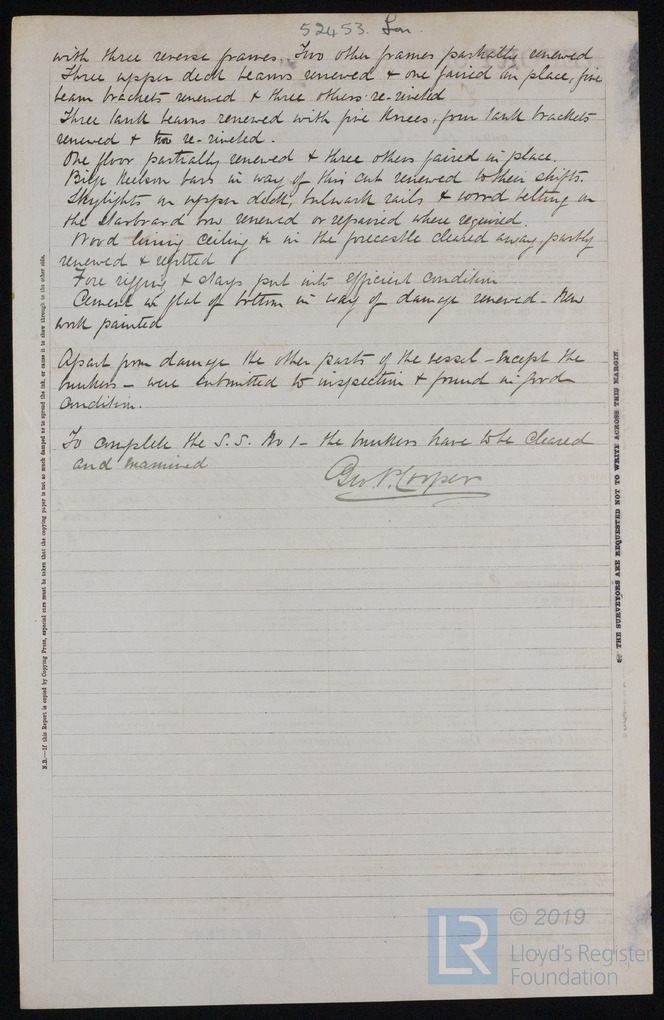 52453. Lon.
with three reverse frames. Two other frames partially renewed
Three upper deck beams renewed & one faired in place, five
beam brackets renewed & three others re-riveted
Three tank beams renewed with five knees, four tank brackets
renewed & two re-riveted.
One floor partially renewed & three others faired in place.
Bilge Keelson bars in way of this cut renewed to their shifts.
Skylights on upper deck, bulwark rails & wood belting on
the starboard bow renewed or repaired where required.
Wood lining ceiling &c in the forecastle cleared away, partly
renewed & refitted
Fore rigging & stays put into efficient condition
Cement in flat of bottom in way of damage renewed - New
work painted
Apart from damage the other parts of the vessel - except the
bunkers - were submitted to inspection & found in good
condition.
To complete the S.S. No 1 - the bunkers have to be cleared
and examined
Geo. P. Cooper
N.B.—If this Report is copied by Copying Press, especial care must be taken that the copying paper is not so much damped as to spread the ink, or cause it to show through to the other side.
THE SURVEYORS ARE REQUESTED NOT TO WRITE ACROSS THIS MARGIN.
LR
© 2019
Lloyd's Register
Foundation